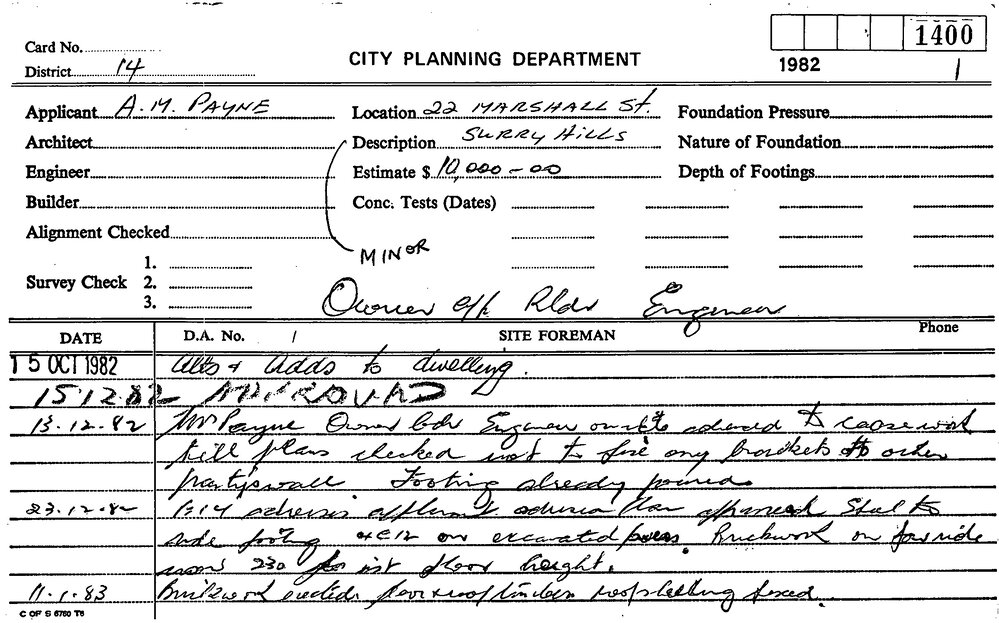 1400
Card No.
District 14
CITY PLANNING DEPARTMENT
1982 1
Applicant A.M. PAYNE Location 22 MARSHALL St. Foundation Pressure
Architect Description SURRY HILLS Nature of Foundation
Engineer Estimate $ 10,000-00 Depth of Footings
Builder Conc. Tests (Dates)
Alignment Checked
MINOR
Survey Check 1.
2.
3.
Owner Bldr Engineer
DATE D.A. No. / SITE FOREMAN Phone
15 OCT 1982 Alts + Adds to dwelling.
15.12.82 APPROVED
13.12.82 Mr Payne Owner Bdr Engineer on site advised to cease work
till plans checked not to fix any brackets to other
partywall. Footing already poured.
23.12.82 advises applicant plan approved Steel to
side footing on excavated piers. Brickwork on
230 for 1st floor height.
11.1.83 Brickwork erected floor roof timbers fixed.
C OF S 5760 T6